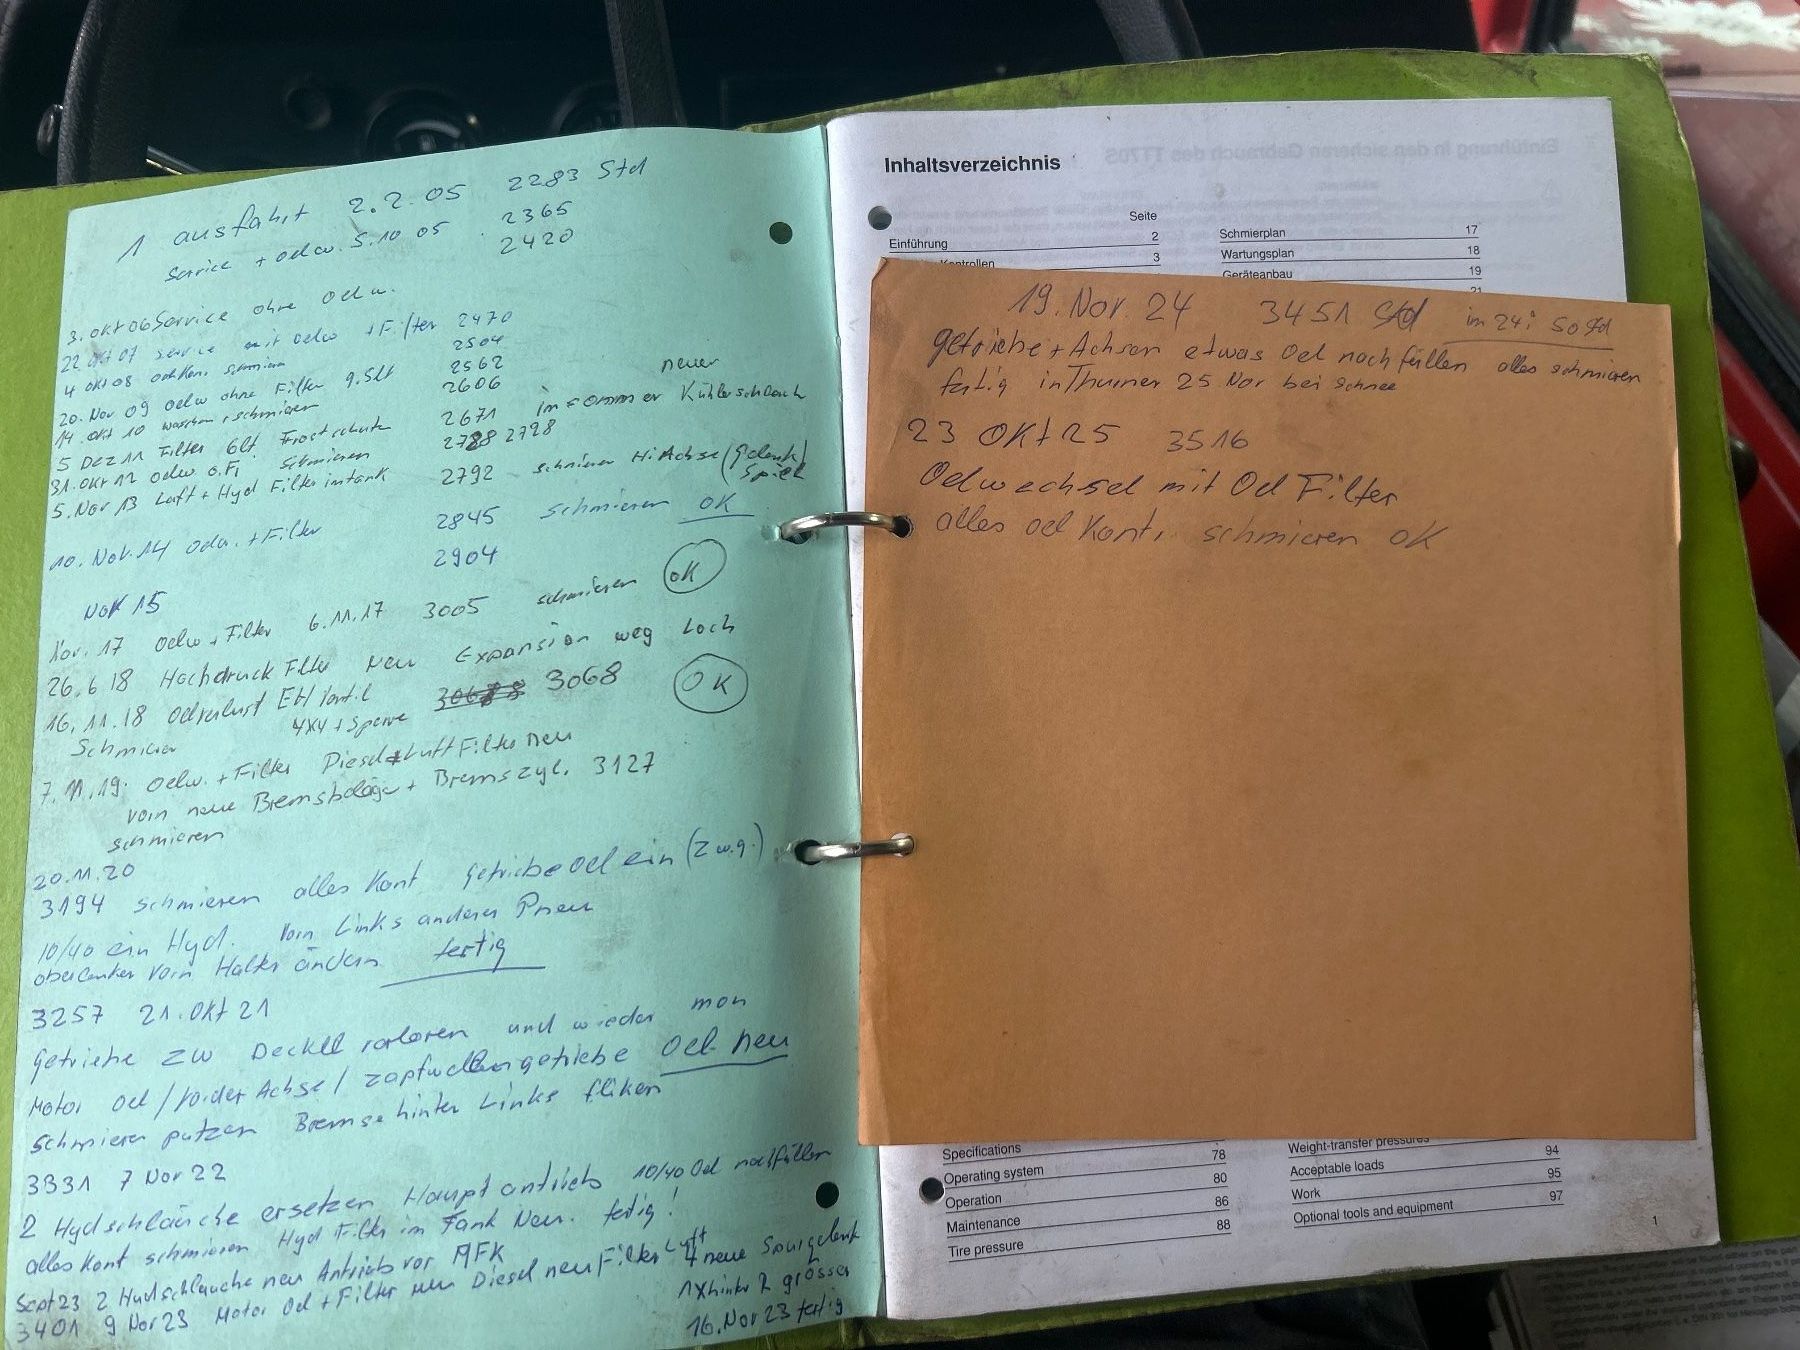 1 ausfahrt 2.2.05 2283 Std
Service + Oelw. 5.10 05 2365
2420
3. Okt 06 Service ohne Oelw.
22 Okt 07 Service mit Oelw + Filter 2470
4 Okt 08 schmieren 2504
20. Nov 09 Oelw ohne Filter 9.5Lt 2562
14. Okt 10 waschen + schmieren 2606
neuer
5 Dez 11 Filter 6lt. Frostschutz 2671 im Sommer Kühlerschlauch
31. Okt 12 Oelw o. Fi. Schmieren 2728
5. Nov 13 Luft + Hyd Filter im tank 2792 schmieren Hi Achse (Gelenk)
Spiel
10. Nov. 14 Oelw. + Filter 2845 schmieren OK
2904
Nov 15
Nov. 17 Oelw + Filter 6.11.17 3005 schmieren OK
26.6 18 Hochdruck Filter Neu Expansion weg Loch
16.11.18 Oelverlust
Schmieren 4x4 + Sperre 3068 OK
7.11.19. Oelw. + Filter Diesel + Luft Filter neu
vorn neue Bremsbeläge + Bremszyl. 3127
schmieren
20.11.20
3194 schmieren alles Kont. Getriebe Oel ein (z w.g.)
10/40 ein Hyd. Vorn Links anderer Pneu
oberlenker vorn Halter ändern fertig
3257 21. Okt 21
Getriebe ZW Deckel verloren und wieder mon
Motor Oel / Vorder Achse / Zapfwellengetriebe Oel neu
schmieren putzen Bremse hinten Links fliken
3331 7 Nov 22
2 Hydschläuche ersetzen Hauptantrieb 10/40 Oel nachfüllen
alles Kont schmieren Hyd Filter im Tank Neu. fertig!
Sept 23 2 Hydschläuche neu Antrieb vor MFK
3401 9 Nov 23 Motor Oel + Filter neu Diesel neu Filter Luft 4 neue Spurgelenk
1x hinten 2 grösser
16. Nov 23 fertig
Inhaltsverzeichnis
Seite
Einführung 2
Kontrollen 3
Schmierplan 17
Wartungsplan 18
Geräteanbau 19
21
19. Nov. 24 3451 Std im 24: 50 Std
Getriebe + Achsen etwas Oel nachfüllen alles schmieren
fertig in Thurner 25 Nov bei schnee
23 Okt 25 3516
Oelwechsel mit Oel Filter
alles oel Kont. schmieren OK
Specifications 78
Operating system 80
Operation 86
Maintenance 88
Tire pressure
Weight-transfer pressures 94
Acceptable loads 95
Work 97
Optional tools and equipment
1